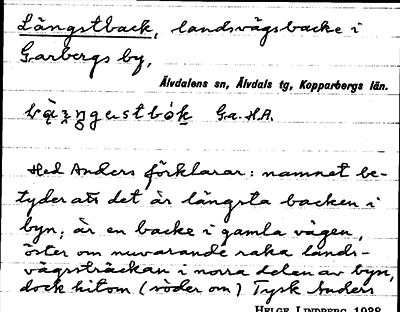 Längstback, landsvägsbacke i
Garbergs by,
Älvdalens sn, Älvdals tg, Kopparbergs län.
Ga. HA.
Hed Anders förklarar: namnet be-
tyder att det är längsta backen i
byn; är en backe i gamla vägen,
öster om nuvarande raka lands-
vägssträckan i norra delen av byn,
dock hitom (söder om) Tysk Anders
HELGE LINDBERG 1938